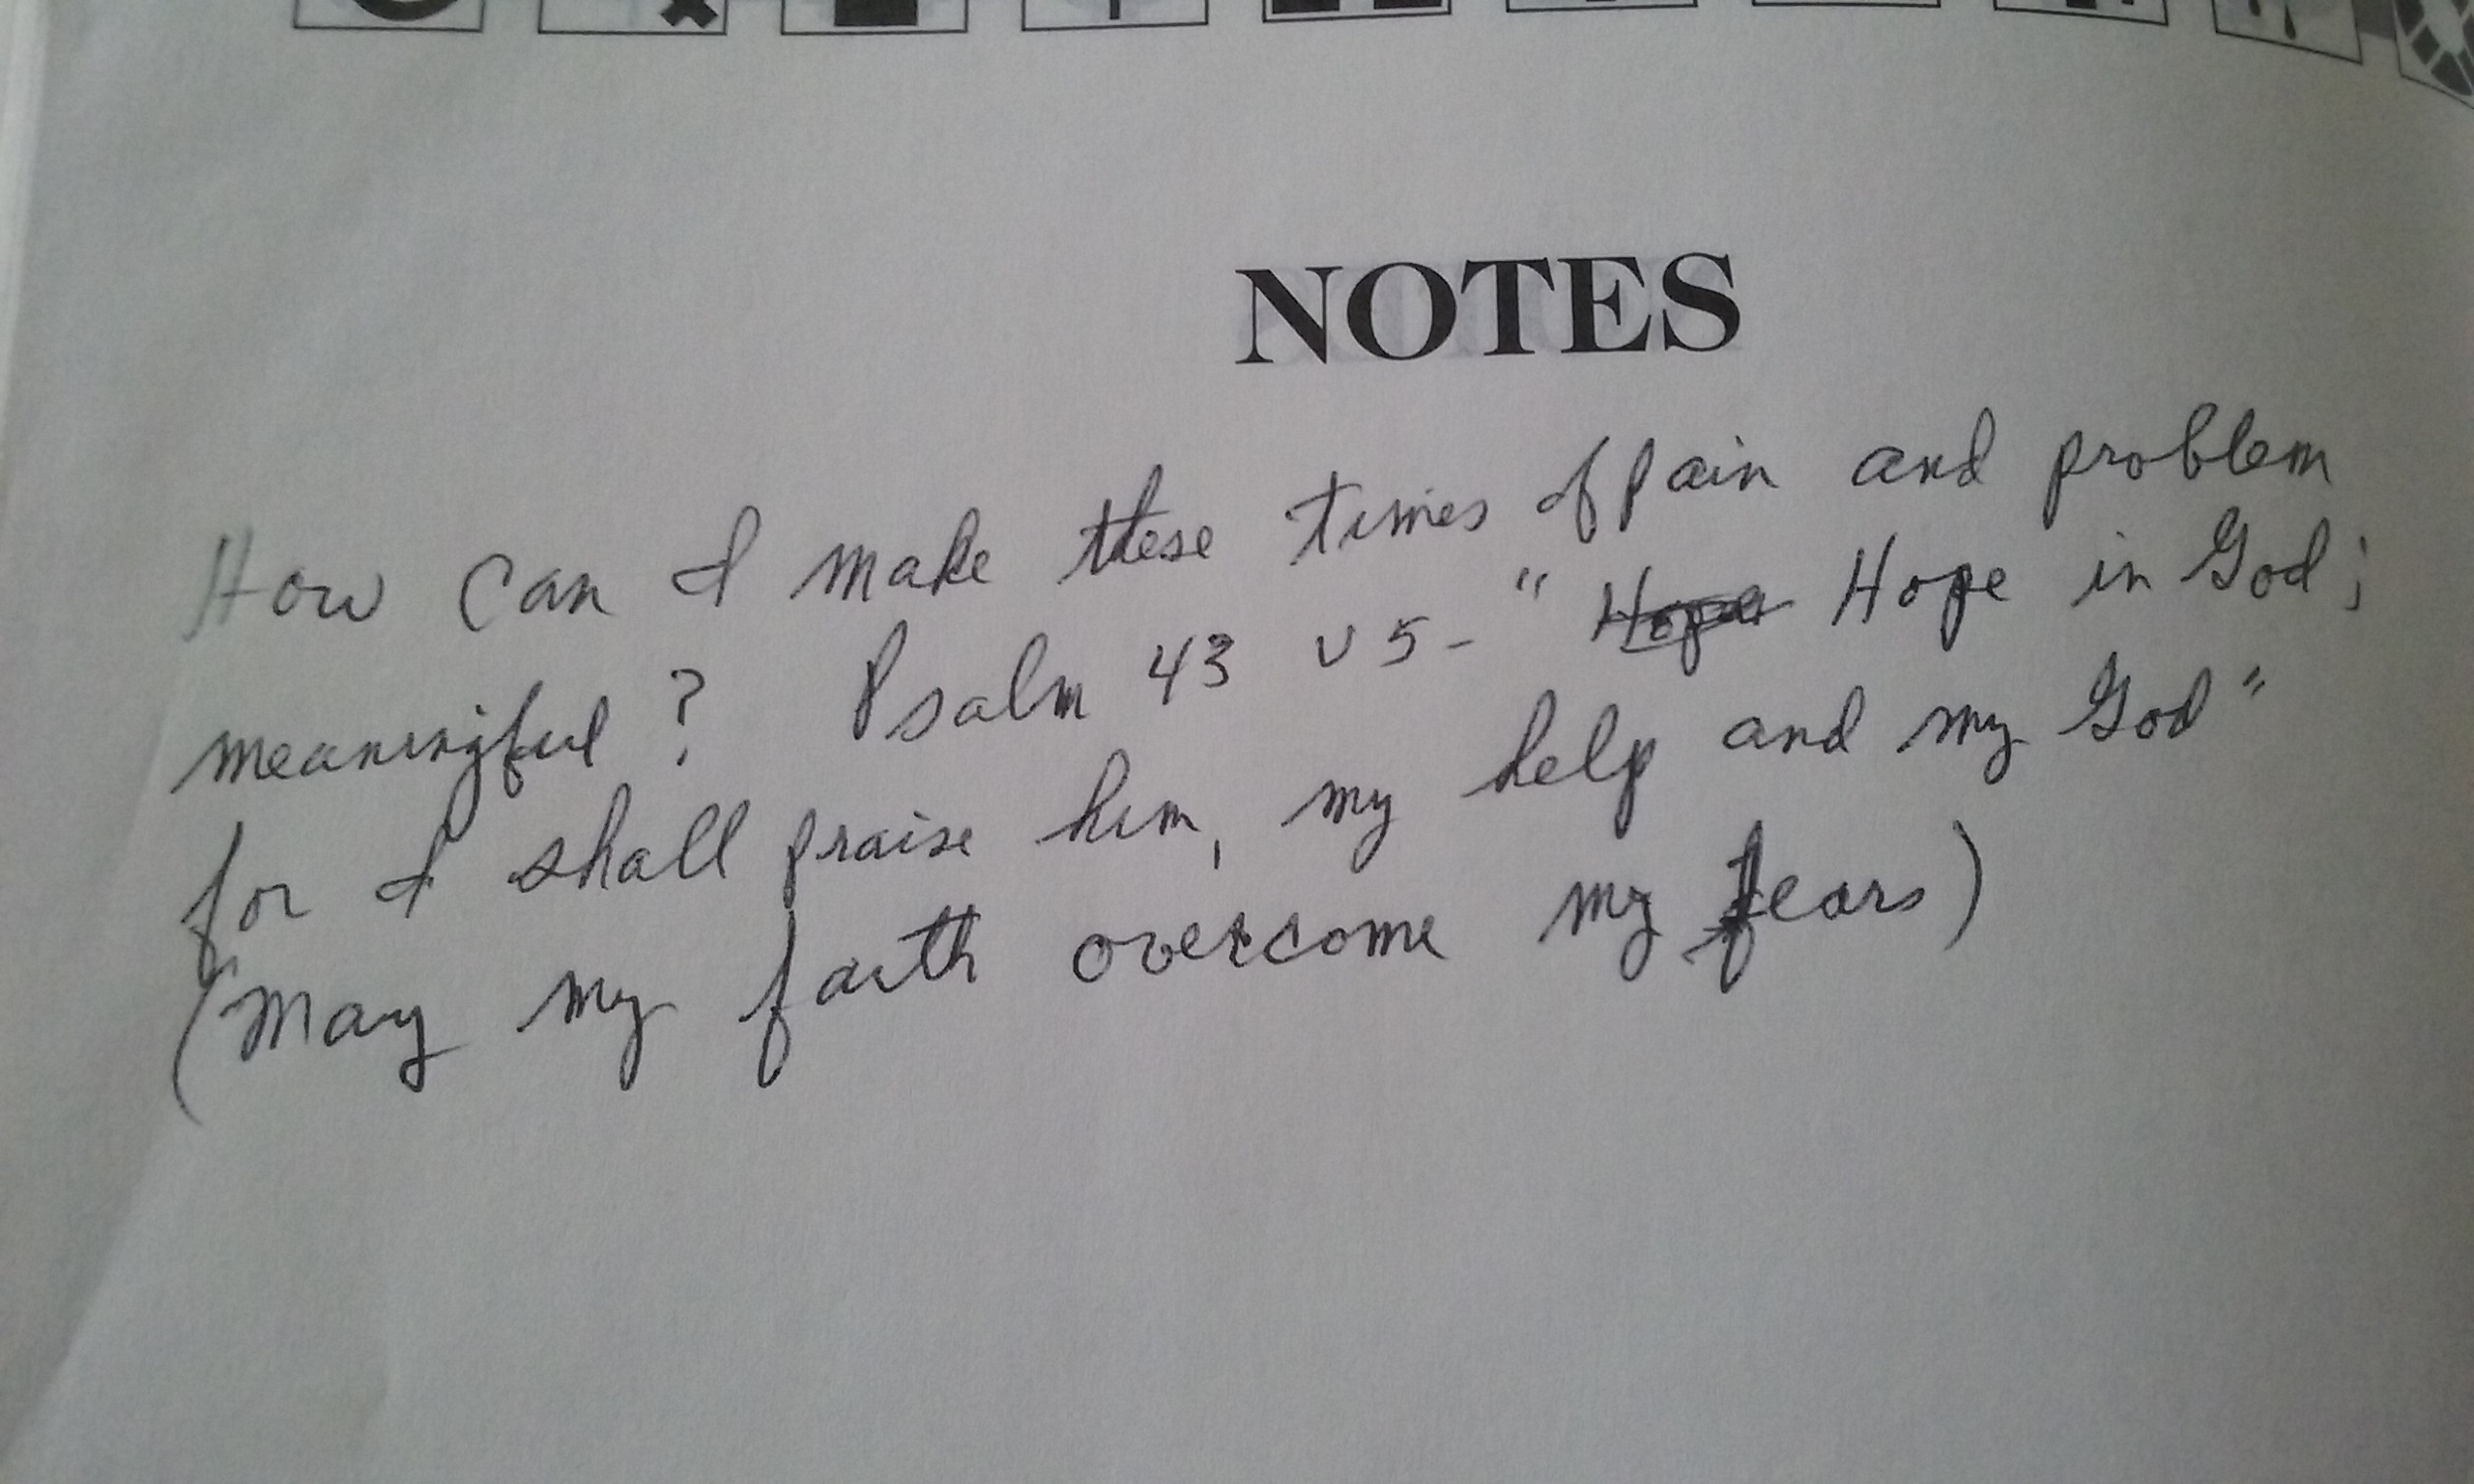 NOTES
How can I make these times of pain and problem
meaningful? Psalm 43 v 5 - " Hope Hope in God;
for I shall praise him, my help and my God"
(May my faith overcome my fears)